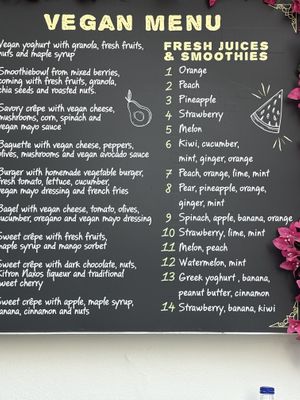 VEGAN MENU
Vegan yoghurt with granola, fresh fruits,
nuts and maple syrup
Smoothiebowl from mixed berries,
coming with fresh fruits, granola,
chia seeds and roasted nuts.
Savory crêpe with vegan cheese,
mushrooms, corn, spinach and
vegan mayo sauce
Baguette with vegan cheese, peppers,
olives, mushrooms and vegan avocado sauce
Burger with homemade vegetable burger,
fresh tomato, lettuce, cucumber,
vegan mayo dressing and french fries
Bagel with vegan cheese, tomato, olives,
cucumber, oregano and vegan mayo dressing
Sweet crêpe with fresh fruits,
maple syrup and mango sorbet
Sweet crêpe with dark chocolate, nuts,
Kitron Naxos liqueur and traditional
sweet cherry
Sweet crêpe with apple, maple syrup,
banana, cinnamon and nuts
FRESH JUICES
& SMOOTHIES
1 Orange
2 Peach
3 Pineapple
4 Strawberry
5 Melon
6 Kiwi, cucumber,
mint, ginger, orange
7 Peach, orange, lime, mint
8 Pear, pineapple, orange,
ginger, mint
9 Spinach, apple, banana, orange
10 Strawberry, lime, mint
11 Melon, peach
12 Watermelon, mint
13 Greek yoghurt , banana,
peanut butter, cinnamon
14 Strawberry, banana, kiwi